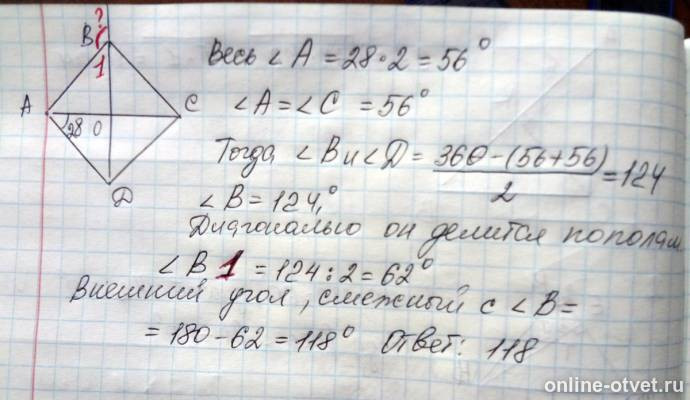 ?
B
1
A
28
O
C
D
Весь ∠ A = 28·2 = 56°
∠A = ∠C = 56°
Тогда ∠B и ∠D = 360-(56+56) / 2 = 124
∠B = 124,°
Диагональю он делится пополам
∠B 1 = 124:2 = 62°
Внешний угол, смежный с ∠B =
= 180-62 = 118° Ответ: 118
online-otvet.ru